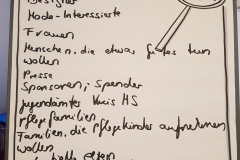 Designer
Mode-Interessierte
Frauen
Menschen, die etwas gutes tun
wollen
Presse
Sponsoren; Spender
Jugendämter Kreis HS
Pflegefamilien
Familien, die Pflegekinder aufnehmen
wollen
eltern